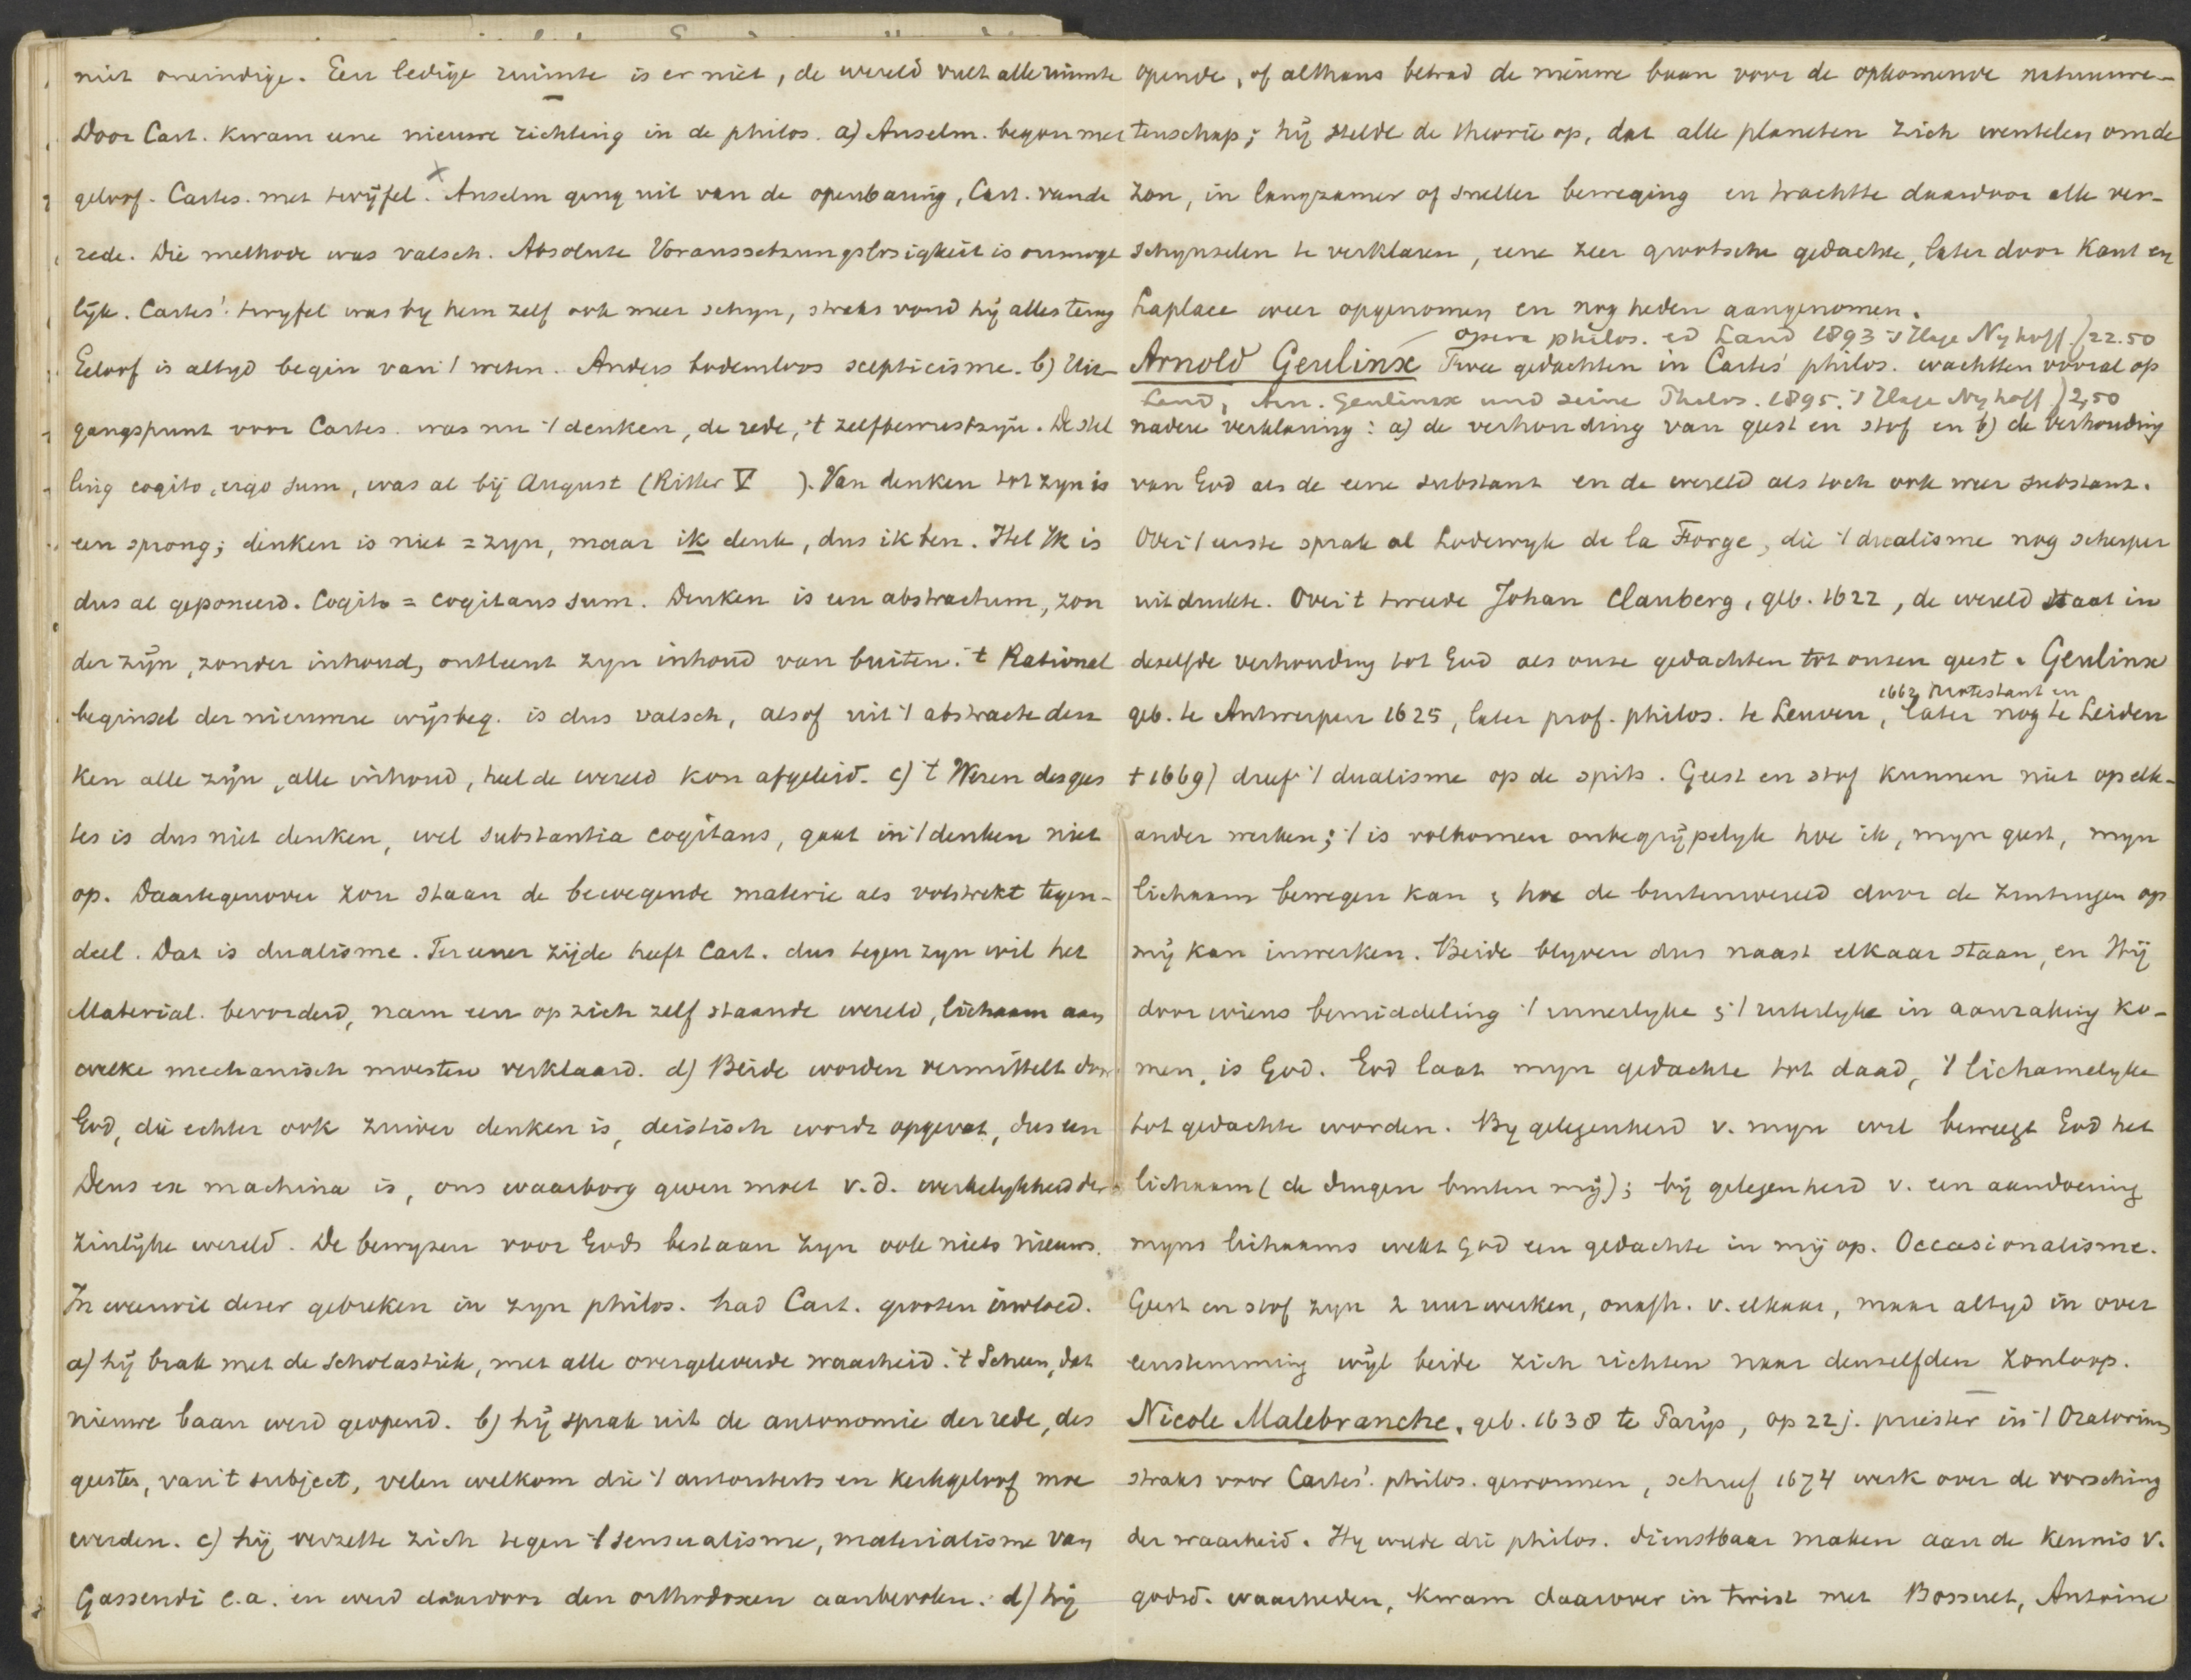 niet oneindige. Een ledige ruimte is er niet, de wereld vult alle ruimte
Door Cart. kwam eene nieuwe richting in de philos. a) Anselm. begon met
geloof. Cartes. met twijfel. x Anselm ging uit van de openbaring, Cart. van de
rede. Die methode was valsch. Absolute Voraussetzungslosigkeit is onmoge
lijk. Cartes'. twyfel was by hem zelf ook meer schyn, straks vond hij alles terug
Geloof is altyd begin van 't weten. Anders bodemloos scepticisme. b) Uit-
gangspunt voor Cartes. was nu 't denken, de rede, 't zelfbewustzijn. De stel
ling cogito, ergo sum, was al bij August (Ritter V ). Van denken tot zyn is
een sprong; denken is niet = zyn, maar ik denk, dus ik ben. Het Ik is
dus al geponeerd. Cogito = cogitans sum. Denken is een abstractum, zon
der zijn, zonder inhoud, ontleent zyn inhoud van buiten. 't Rational
beginsel der nieuwere wijsbeg. is dus valsch, alsof uit 't abstracte den
ken alle zijn, alle inhoud, heel de wereld kon afgeleid. c) 't Wezen des gees
tes is dus niet denken, wel substantia cogitans, gaat in 't denken niet
op. Daartegenover zou staan de bewegende materie als volstrekt tegen-
deel. Dat is dualisme. Ter eener zijde heeft Cart. dus tegen zyn wil het
Material. bevorderd, nam een op zich zelf staande wereld, lichaam aan
welke mechanisch moesten verklaard. d) Beide worden vermittelt door
God, die echter ook zuiver denken is, deistisch wordt opgevat, dus een
Deus ex machina is, ons waarborg geven moet v. d. werkelykheid der
zinlijke wereld. De bewyzen voor Gods bestaan zyn ook niets nieuws.
In weerwil dezer gebreken in zyn philos. had Cart. grooten invloed.
a) hij brak met de Scholastiek, met alle overgeleverde waarheid. 't Scheen, dat
nieuwe baan werd geopend. b) hij sprak uit de autonomie der rede, des
geestes, van 't subject, velen welkom die 't autoriteits en kerkgeloof moe
werden. c) hij verzette zich tegen 't sensualisme, materialisme van
Gassendi e.a. en werd daardoor den orthodoxen aanbevolen. d) hij
opende, of althans betrad de nieuwe baan voor de opkomende natuurwe-
tenschap; hij stelde de theorie op, dat alle planeten zich wentelen om de
zon, in langzamer of sneller beweging en trachtte daardoor alle ver-
schynselen te verklaren, eene zeer grootsche gedachte, later door Kant en
Laplace weer opgenomen en nog heden aangenomen.
opera philos. ed Land 1893 's Hage Nyhoff f 22.50
Arnold Geulinx Twee gedachten in Cartes' philos. wachtten vooral op
Land, Arn. Geulincx und seine Philos. 1895. 's Hage Nyhoff f 2,50
nadere verklaring: a) de verhouding van geest en stof en b) de verhouding
van God als de eene substant en de wereld als toch ook weer substant.
Over 't eerste sprak al Lodewyk de la Forge, die 't dualisme nog scherper
uitdrukte. Over 't tweede Johan Clauberg, geb. 1622, de wereld staat in
dezelfde verhouding tot God als onze gedachten tot onzen geest. Geulinx
1662 Protestant en
geb. te Antwerpen 1625, later prof. philos. te Leuven, later nog te Leiden
† 1669) dreef 't dualisme op de spits. Geest en stof kunnen niet op elk-
ander werken; 't is volkomen onbegrijpelyk hoe ik, myn geest, myn
lichaam bewegen kan ; hoe de buitenwereld door de zintuigen op
mij kan inwerken. Beide blyven dus naast elkaar staan, en Hij
door wiens bemiddeling 't innerlyke & 't uiterlyke in aanraking ko-
men, is God. God laat myn gedachte tot daad, 't lichamelyke
tot gedachte worden. By gelegenheid v. myn wil beweegt God het
lichaam (de dingen buiten mij); bij gelegenheid v. een aandoening
myns lichaams wekt God een gedachte in mij op. Occasionalisme.
Geest en stof zyn 2 uurwerken, onafh. v. elkaar, maar altyd in over
eenstemming wijl beide zich richten naar denzelfden zonloop.
Nicole Malebranche. geb. 1638 te Parijs, op 22 j. priester in 't Oratorium
straks voor Cartes'. philos. gewonnen, schreef 1674 werk over de vorsching
der waarheid. Hy wilde die philos. dienstbaar maken aan de kennis v.
godsd. waarheden, kwam daarover in twist met Bossuet, Antoine